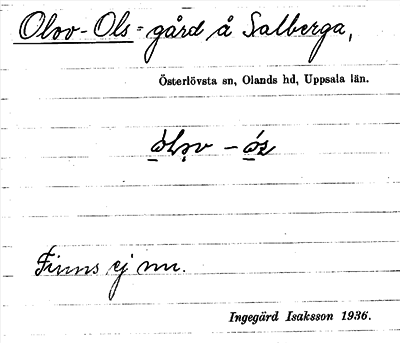 Olov-Ols-gård å Salberga,
Österlövsta sn, Olands hd, Uppsala län.
ólǫv - ós
Finns ej nu.
Ingegärd Isaksson 1936.